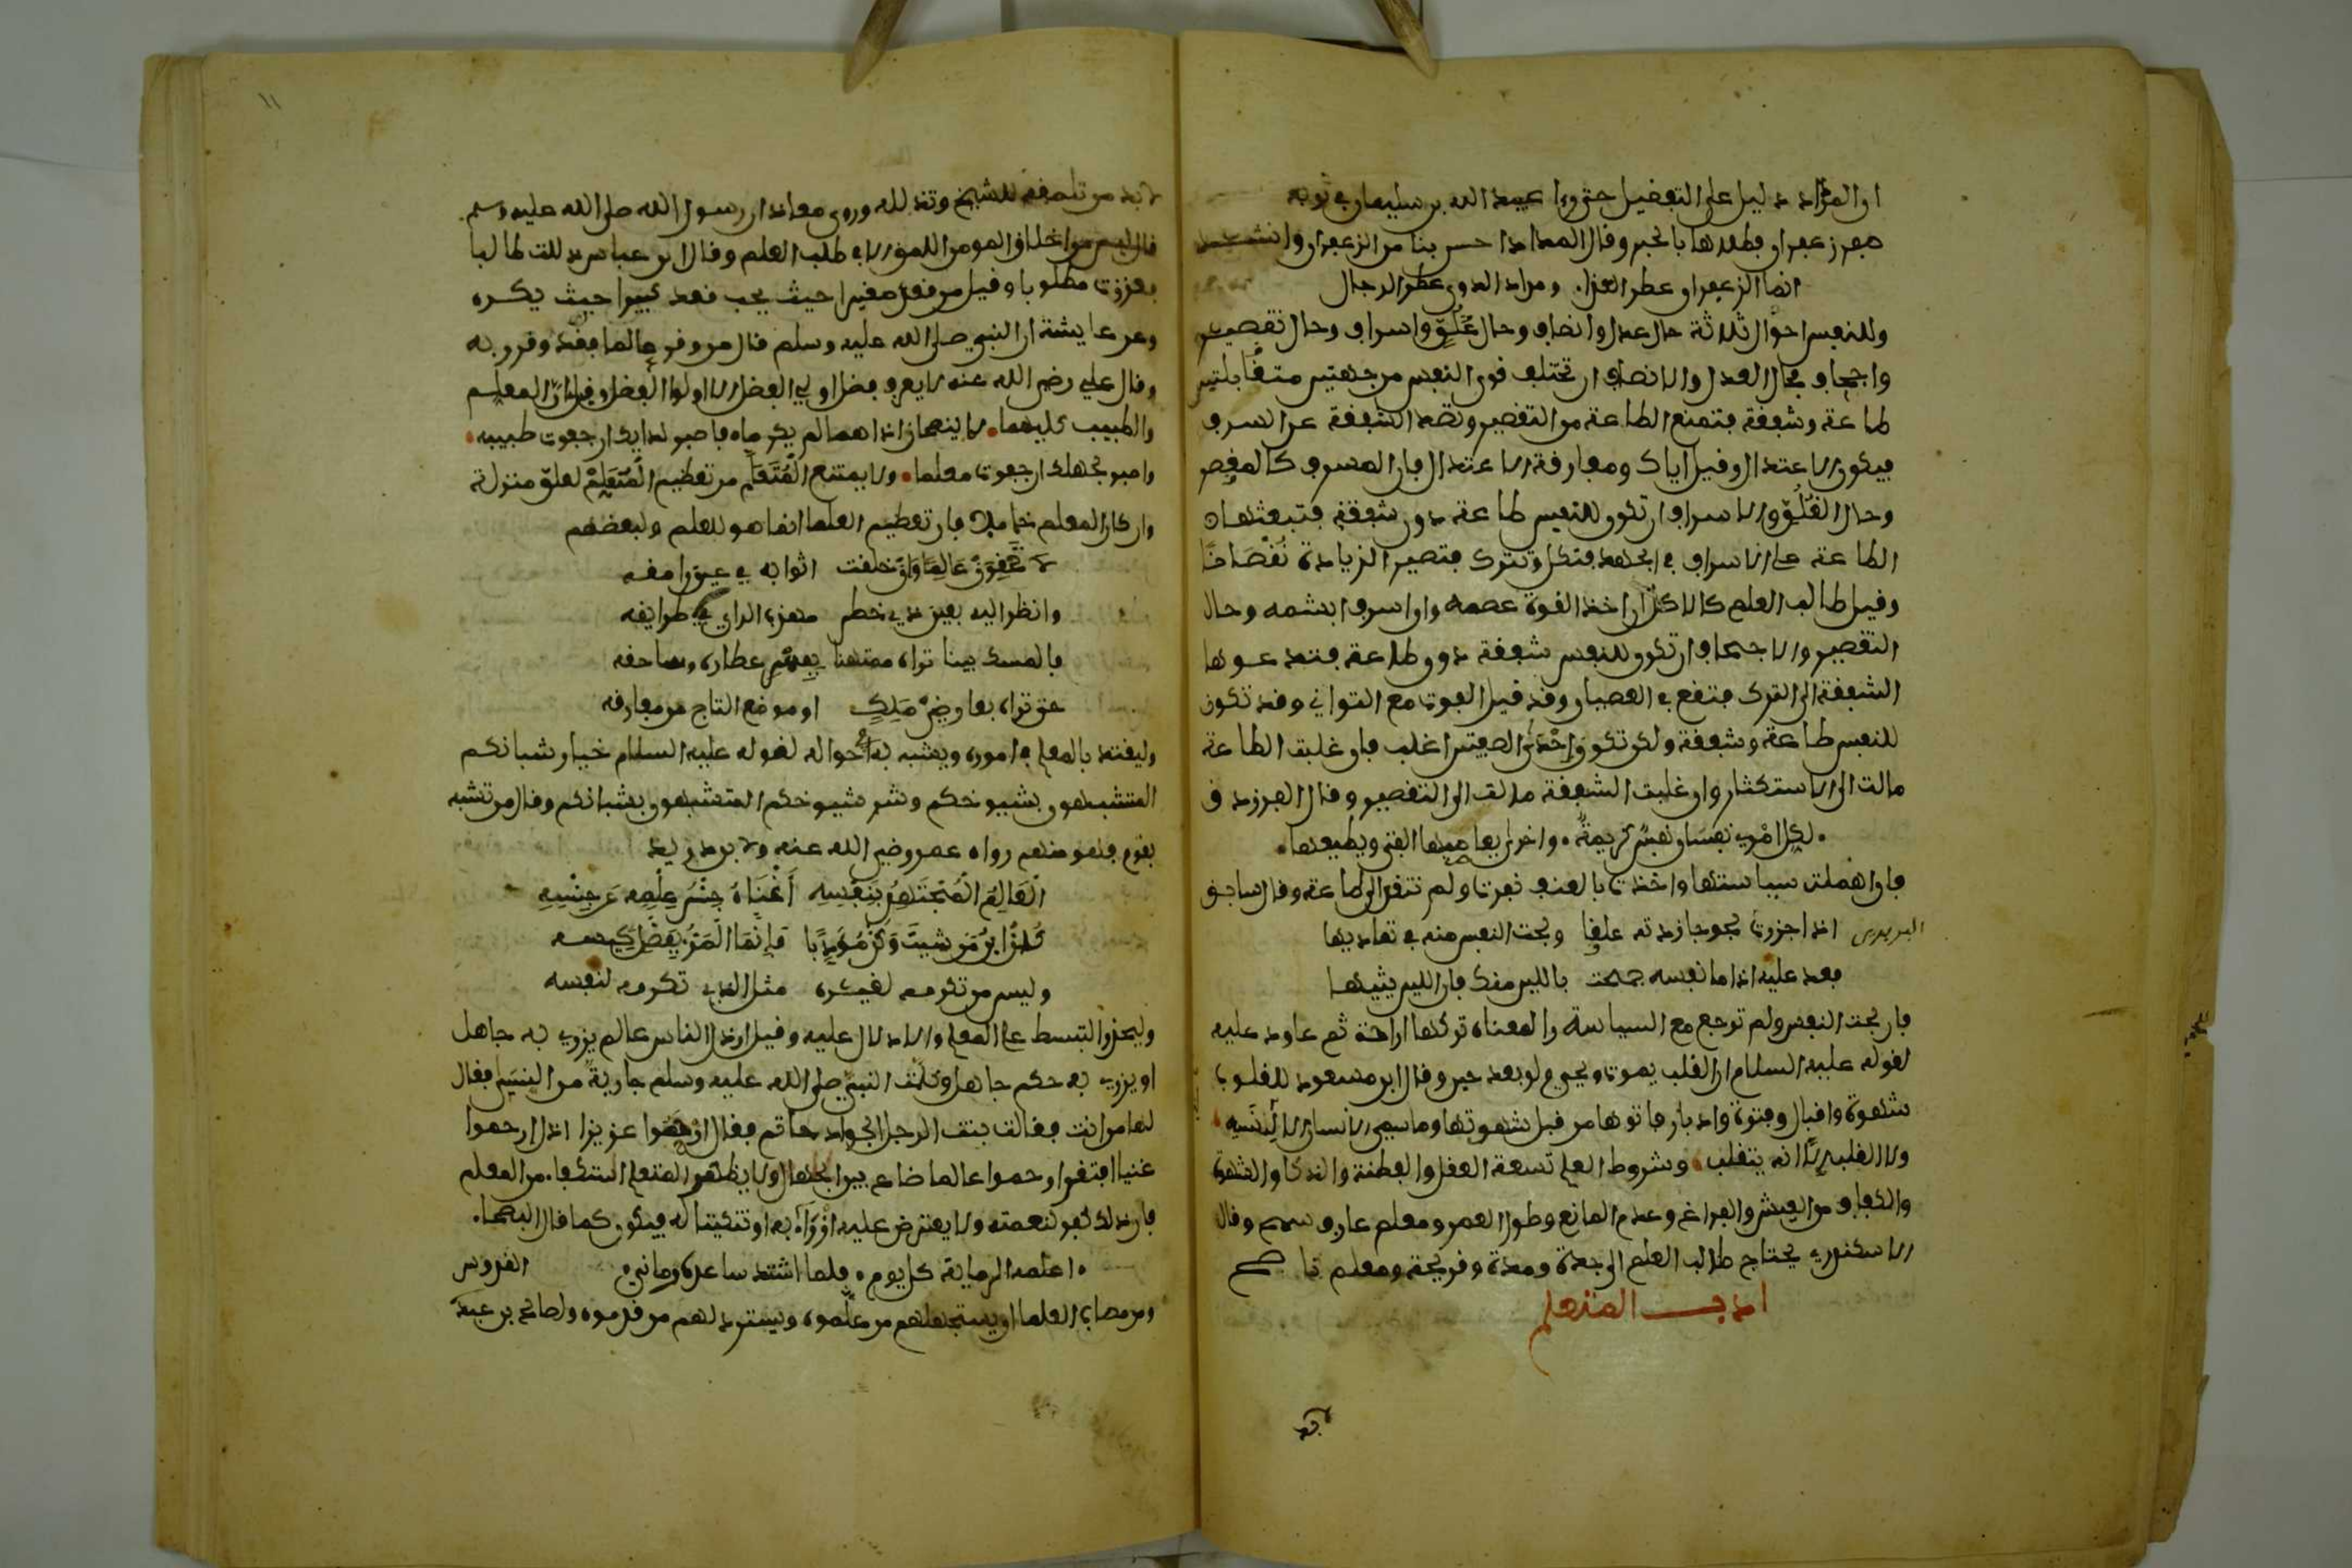 ان المداد دليل على التفضيل حتى روى عبيد الله بن سليمان في ثوبه
صفرة زعفران فطلاها بالحبر وقال المداد احسن بنا من الزعفران وانشد
انما الزعفران عطر العذارى ومداد الدوى عطر الرجال
وللنفس احوال ثلاثة حال عدل وانصاف وحال غلو واسراف وحال تقصير
واجحاف فحال العدل والانصاف ان تختلف قوى النفس من جهتين متقابلتين
طاعة وشفقة فتمنع الطاعة من التقصير وتصد الشفقة عن السرف
فيكون الاعتدال وقيل اياك ومفارقة الاعتدال فان المسرف كالمقصر
وحال الغلو والاسراف ان تكون للنفس طاعة دون شفقة فتبعثها
الطاعة على الاسراف في الجهد فتكل وتترك فتصير الزيادة نقصانا
وقيل طالب العلم كالاكل ان اخذ القوة عصمه وان اسرف ابشمه وحال
التقصير والاجحاف ان تكون للنفس شفقة دون طاعة فتدعوها
الشفقة الى الترك فتقع في العصيان وقد قيل الفوت مع التواني وقد تكون
للنفس طاعة وشفقة ولكن تكون احدى الصفتين اغلب فان غلبت الطاعة
مالت الى الاستكثار وان غلبت الشفقة مالت الى التقصير وقال الفرزدق
لكل امرئ نفسان نفس كريمة واخرى يعاصيها الفتى ويطيعها
فان اهملت سياستها واخذت بالعنف نفرت ولم تنقد الى طاعة وقال سابق
البربري اذا زجرت لجوجا زدته علقا ولجت النفس منه في تماديها
فعد عليه اذا ما نفسه جمحت باللين منك فان اللين يثنيها
فان لجت النفس ولم ترجع مع السياسة والمعناة تركها اراحة ثم عاود عليه
لقوله عليه السلام ان القلب يموت ويحيى ولو بعد حين وقال ابن مسعود للقلوب
شهوة واقبال وفترة وادبار فاتوها من قبل شهوتها وما سمي الانسان الا لنسيه
ولا القلب الا انه يتقلب وشروط العلم تسعة العقل والفطنة والذكا والشهوة
والكفاف من العيش والفراغ وعدم المانع وطول العمر ومعلم عارف سمح وقال
الاسكندري يحتاج طالب العلم الى جدة ومدة وقريحة ومعلم ناصح
ادب المتعلم
لا بد من تلمقه للشيخ وتذلله وروى معاذ ان رسول الله صلى الله عليه وسلم
قال ليس من اخلاق المومن الملق الا في طلب العلم وقال ابن عباس ذللت طالبا
فعززت مطلوبا وقيل من قعد صغيرا حيث يحب قعد كبيرا حيث يكره
وعن عايشة ان النبي صلى الله عليه وسلم قال من وقر عالما فقد وقر ربه
وقال علي رضي الله عنه لا يعرف فضل اولي الفضل الا اولوا الفضل وقيل ان المعلم
والطبيب كليهما لا ينصحان اذا هما لم يكرما فاصبر لدايك ان جفوت طبيبه
واصبر لجهلك ان جفوت معلما ولا يمتنع المتعلم من تعظيم المعلم لعلو منزلة
وان كان المعلم خاملا فان تعظيم العلما انما هو للعلم ولبعضهم
لا تحقرن عالما وان خلقت اثوابه في عيون رامقه
وانظر اليه بعين ذي خطر مهذب الراي في طرايقه
فالمسك بينا تراه ممتهنا بفهر عطاره وساحقه
حتى تراه بعارضي ملك او موضع التاج من مفارقه
وليقتد بالمعلم في اموره ويتشبه به في احواله لقوله عليه السلام خيار شبانكم
المتشبهون بشيوخكم وشر شيوخكم المتشبهون بشبانكم وقال من تشبه
بقوم فهو منهم رواه عمر رضي الله عنه ولابن دريد
العالم المجتهد بنفسه اغناه جنس علمه عن جنسه
كن ابن من شيت وكن مودبا فانما المرء بفضل كيسه
وليس من تكرمه لغيره مثل الذي تكرمه لنفسه
وليحذر التبسط على المعلم والادلال عليه وقيل اذل الناس عالم يزري به جاهل
او يزري به حكم جاهل وكلمت النبي صلى الله عليه وسلم جارية من السبي فقال
لها من انت فقالت بنت الرجل الجواد حاتم فقال ارحموا عزيزا اذل ارحموا
غنيا افتقر ارحموا عالما ضاع بين الجهال ولا يظهر المتعلم استكفاء من المعلم
فان ذلك كفر لنعمته ولا يعترض عليه ازراء به او تنكيتا له فيكون كما قال البصا.
اعلمه الرماية كل يوم فلما اشتد ساعده رماني
ومن مصاب العلما ان يستجهلهم من علموه ويسترذلهم من قدموه ولصالح بن عبد القدوس